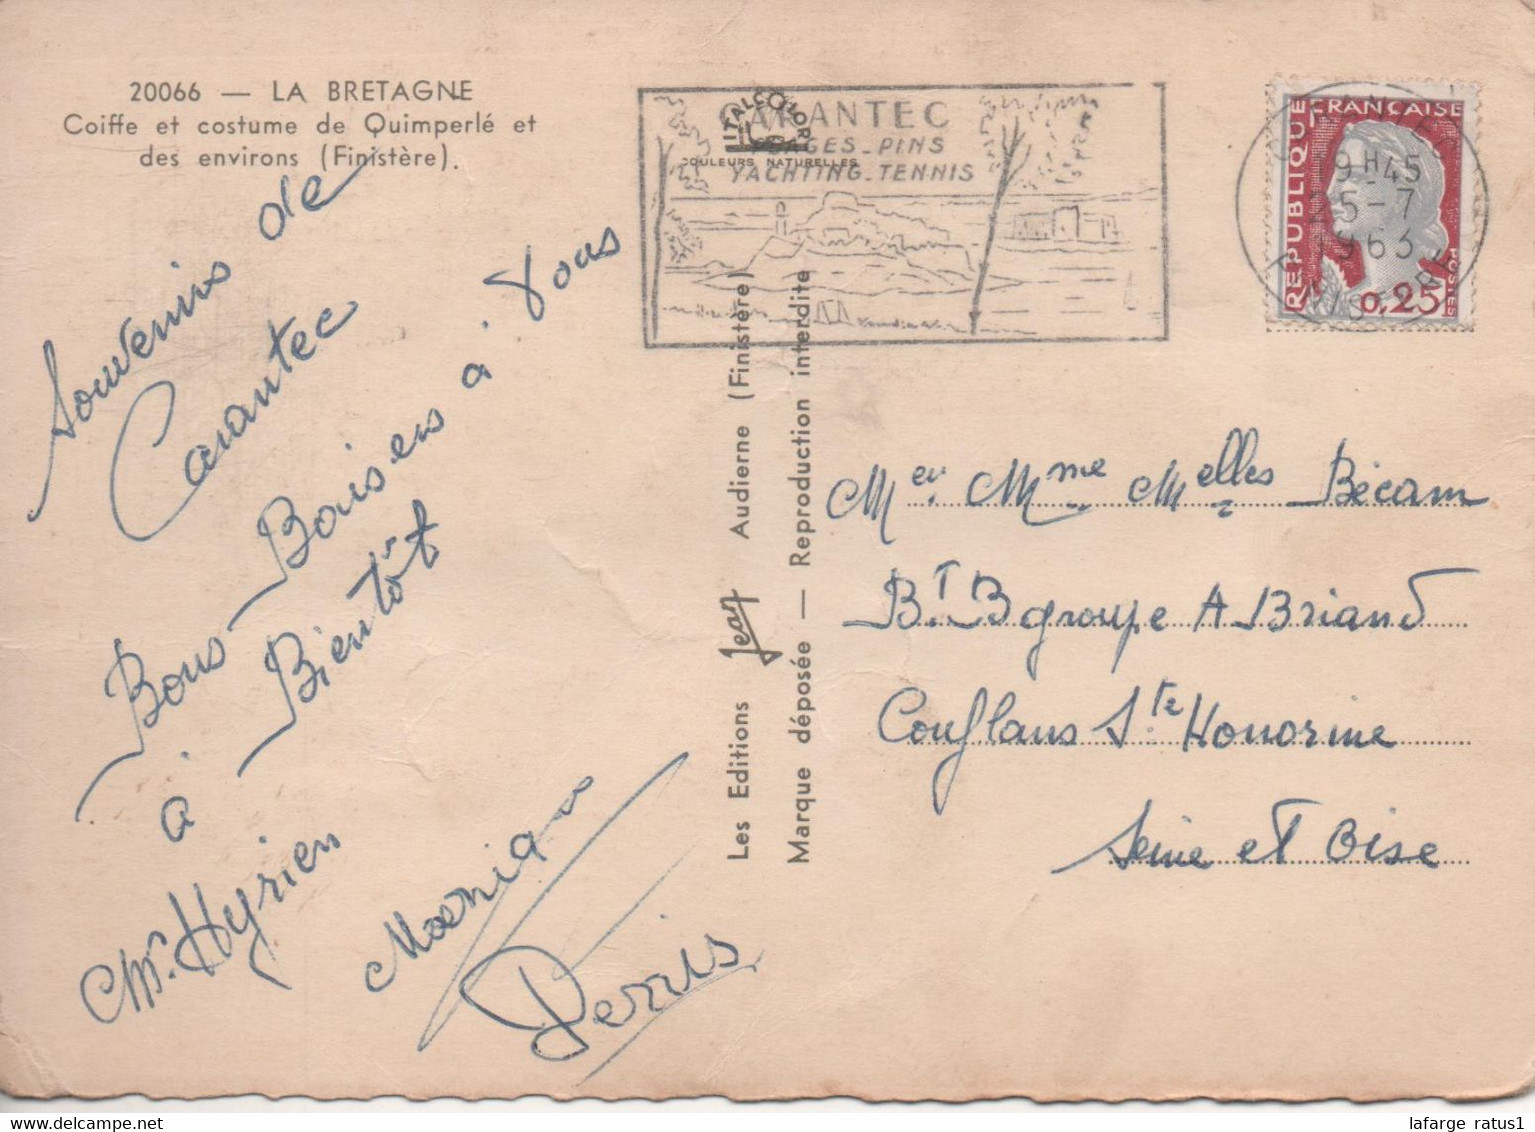 20066 — LA BRETAGNE
Coiffe et costume de Quimperlé et
des environs (Finistère).
CARANTEC
PLAGES_PINS
YACHTING_TENNIS
ITALCOLOR
COULEURS NATURELLES
REPUBLIQUE FRANÇAISE
POSTES
0,25
CARANTEC
19H45
1963
FINISTERE
Souvenirs de
Carantec
Bons Baisers à Vous
à Bientôt
Mr. Hyrien
Denis
Les Editions Jean Audierne (Finistère)
Marque déposée — Reproduction interdite
Mer. Mme Melles Bécam
BT B groupe A Briand
Conflans Ste Honorine
Seine et Oise
lafarge ratus1